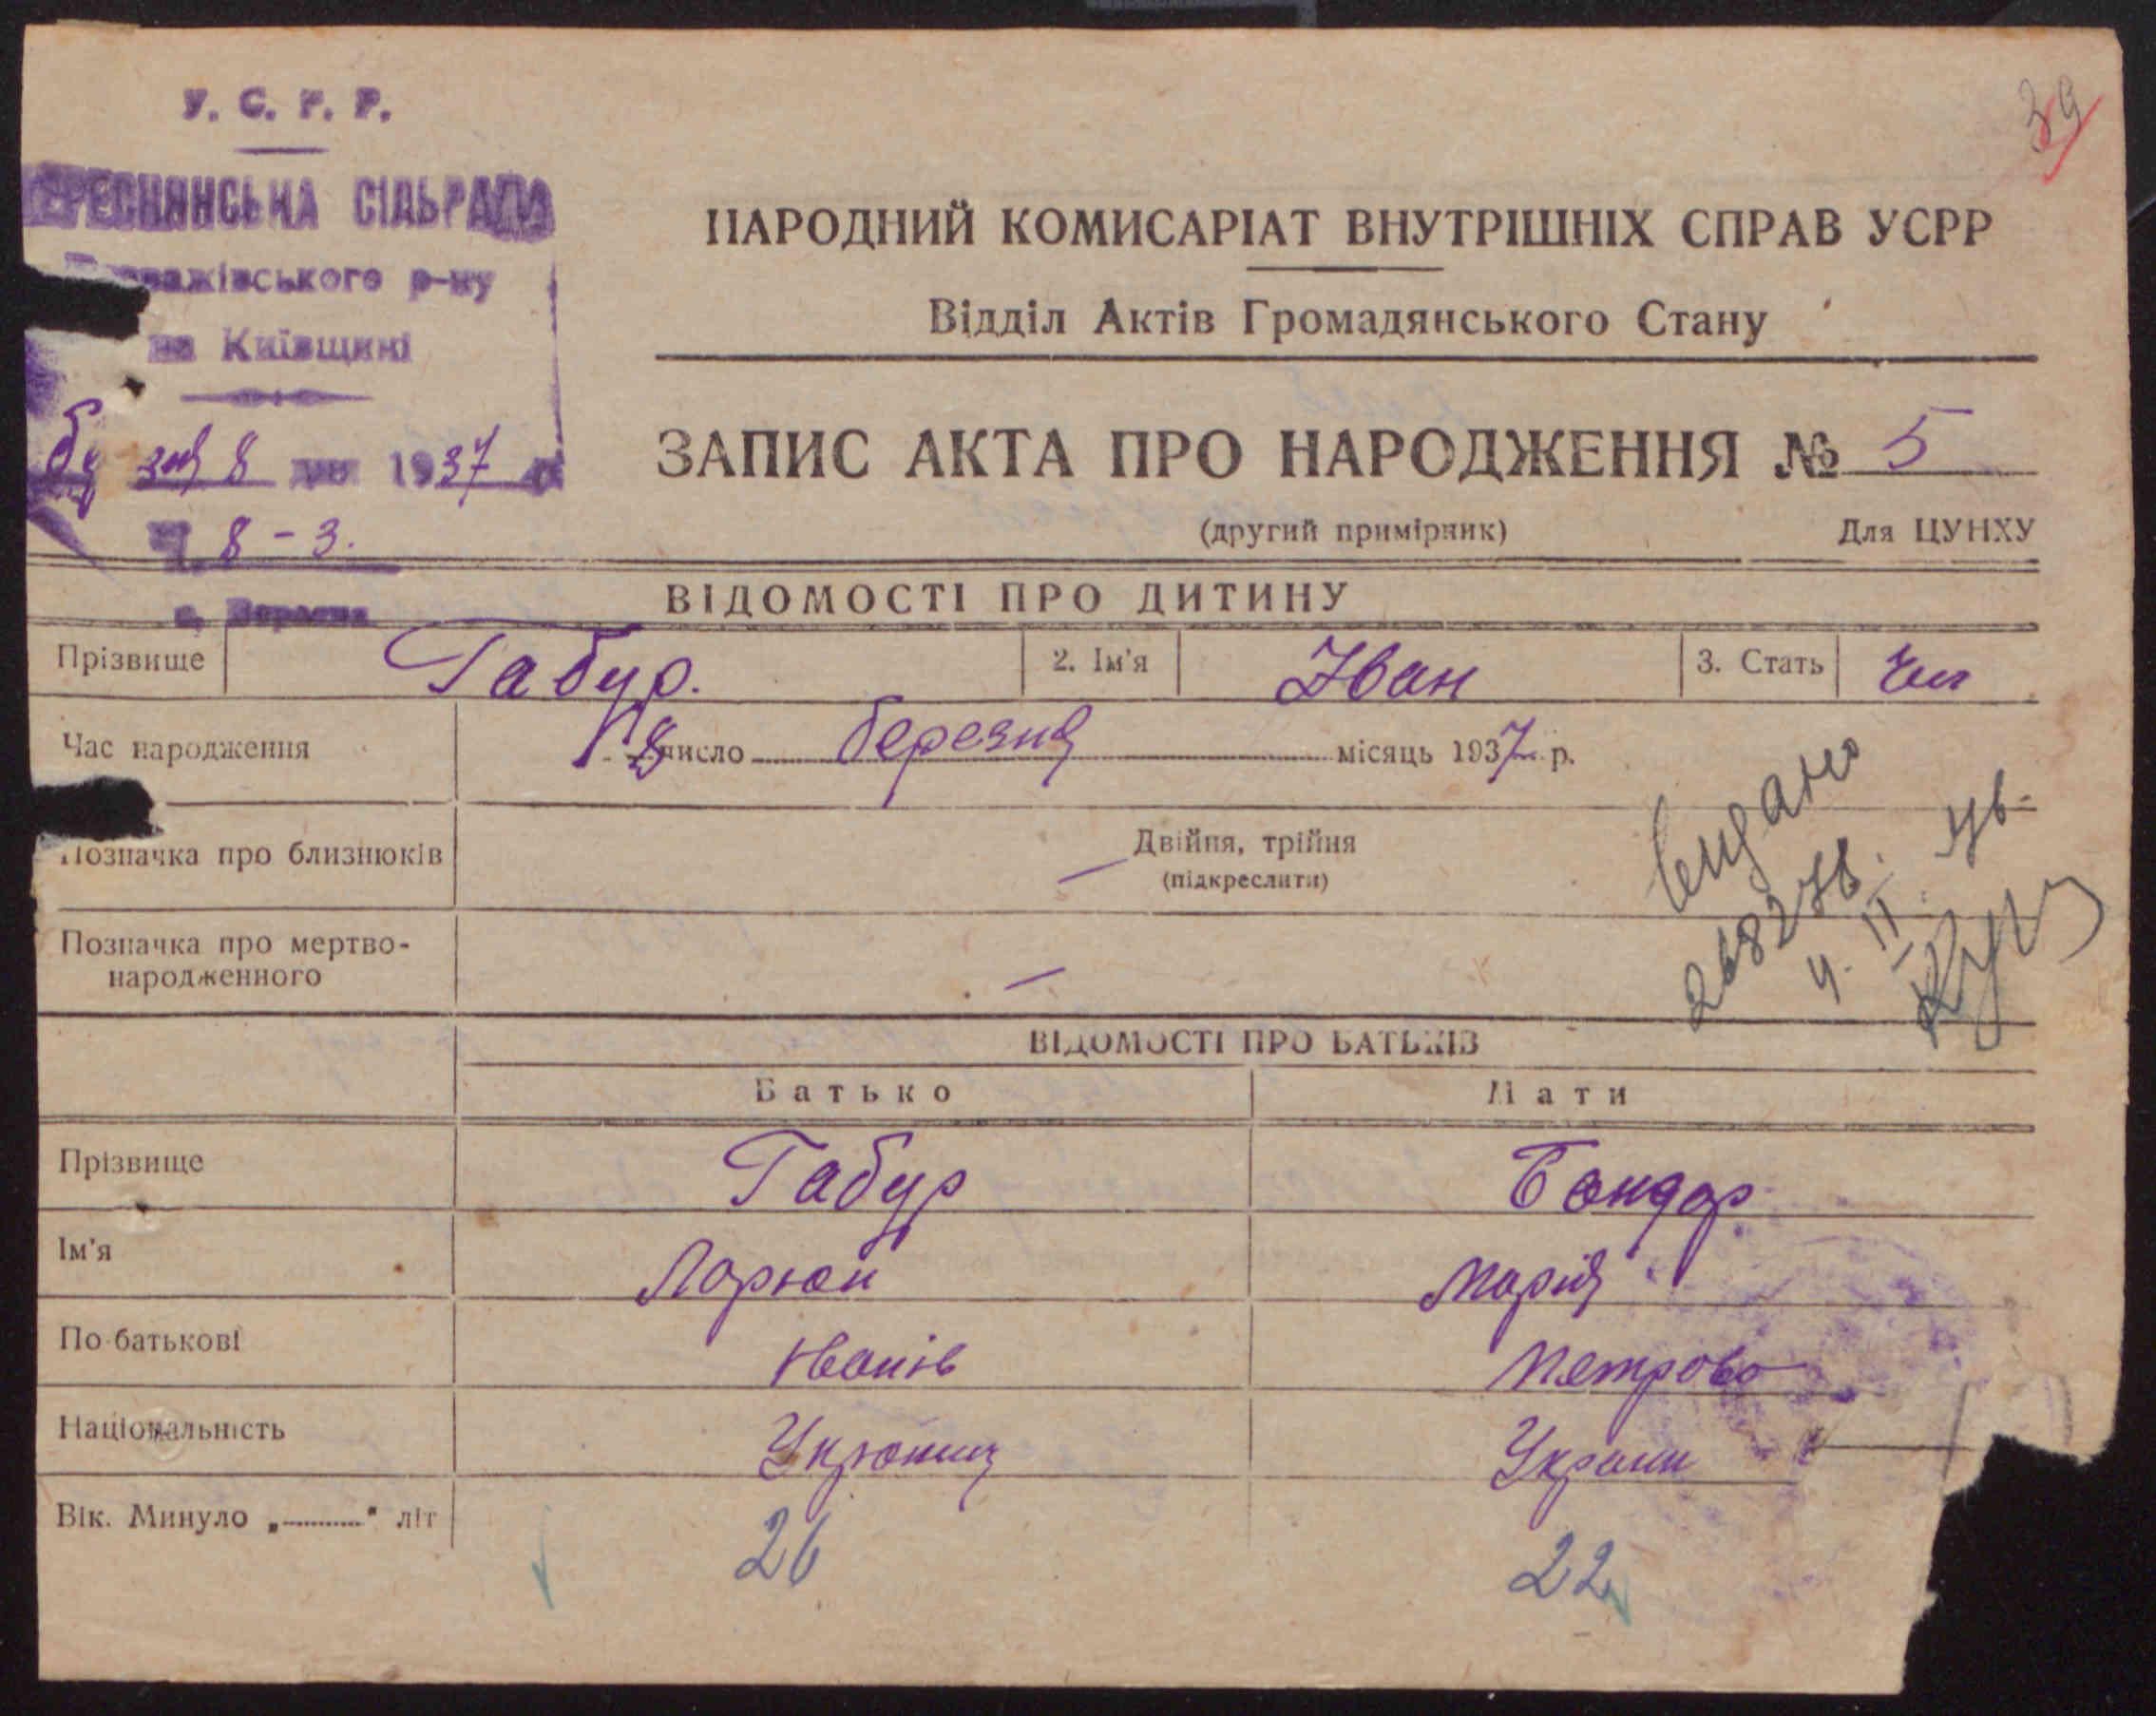 39
У. С. Р. Р.
ЕРЕСНЯНСЬКА СІЛЬРАДА
ражівського р-ну
на Київщині
8 1937
8 - 3.
НАРОДНИЙ КОМИСАРІАТ ВНУТРІШНІХ СПРАВ УСРР
Відділ Актів Громадянського Стану
ЗАПИС АКТА ПРО НАРОДЖЕННЯ № 5
(другий примірник) Для ЦУНХУ
ВІДОМОСТІ ПРО ДИТИНУ
Прізвище Габур. 2. Ім'я Іван 3. Стать Чол
Час народження 8 число березня місяць 1937 р.
Позначка про близнюків Двійня, трійня —
(підкреслити)
Позначка про мертво-
народженного —
видано
268278.
4. II
ВІДОМОСТІ ПРО БАТЬКІВ
Батько Мати
Прізвище Габур Бондар
Ім'я Ларион Марія
По-батькові Іванів Петрова
Національність Украинц Украин
Вік. Минуло „..........“ літ 26 22